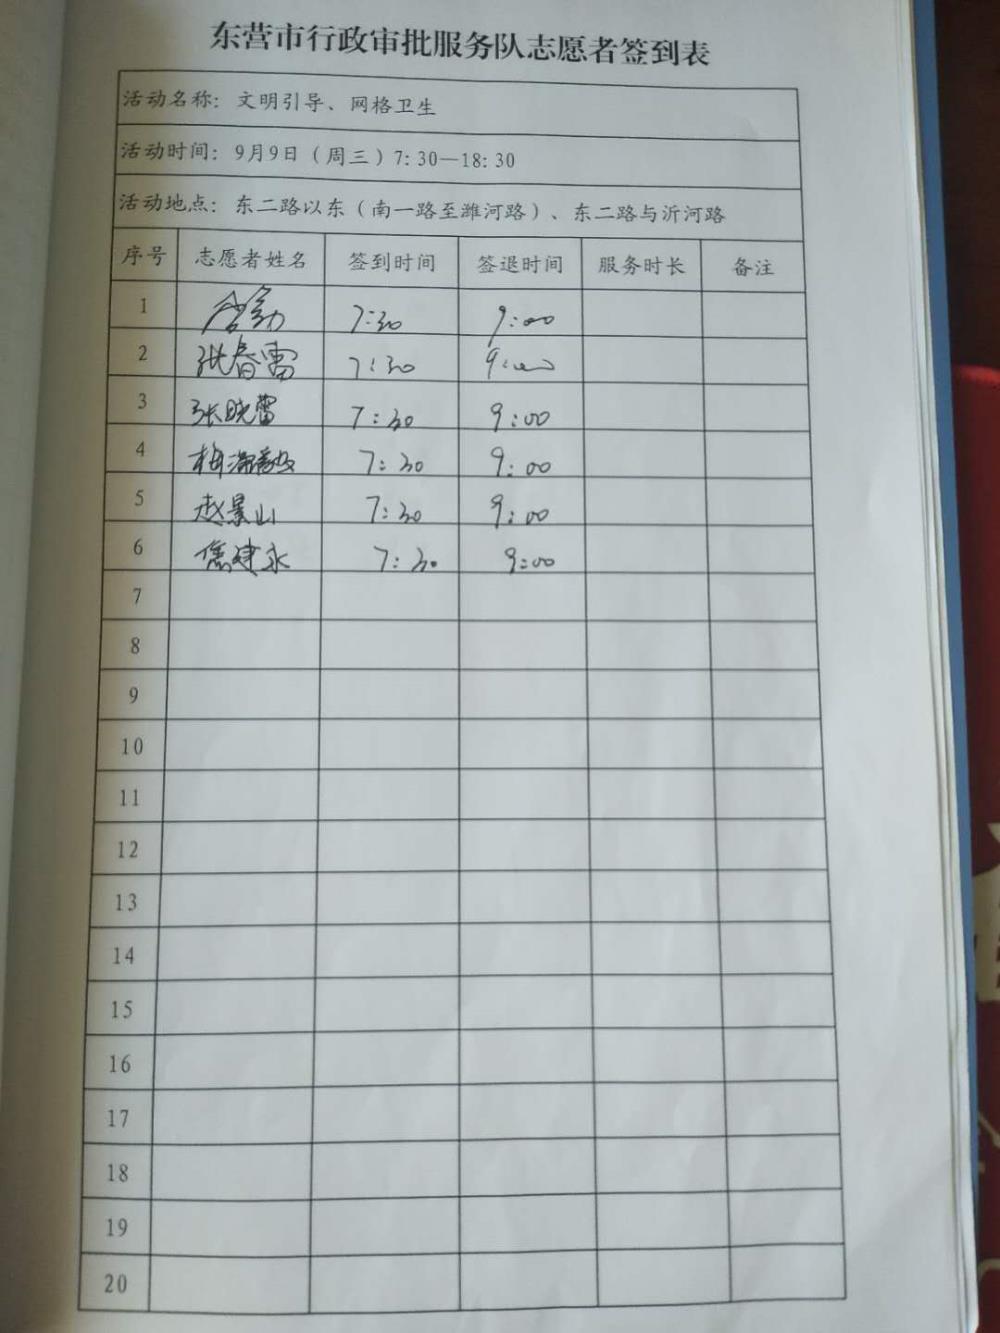 东营市行政审批服务队志愿者签到表
活动名称：文明引导、网格卫生
活动时间：9月9日（周三）7:30—18:30
活动地点：东二路以东（南一路至潍河路）、东二路与沂河路
序号 志愿者姓名 签到时间 签退时间 服务时长 备注
1 7:30 9:00
2 张春雷 7:30 9:00
3 张晓蕾 7:30 9:00
4 梅 7:30 9:00
5 赵景山 7:30 9:00
6 建永 7:30 9:00
7
8
9
10
11
12
13
14
15
16
17
18
19
20